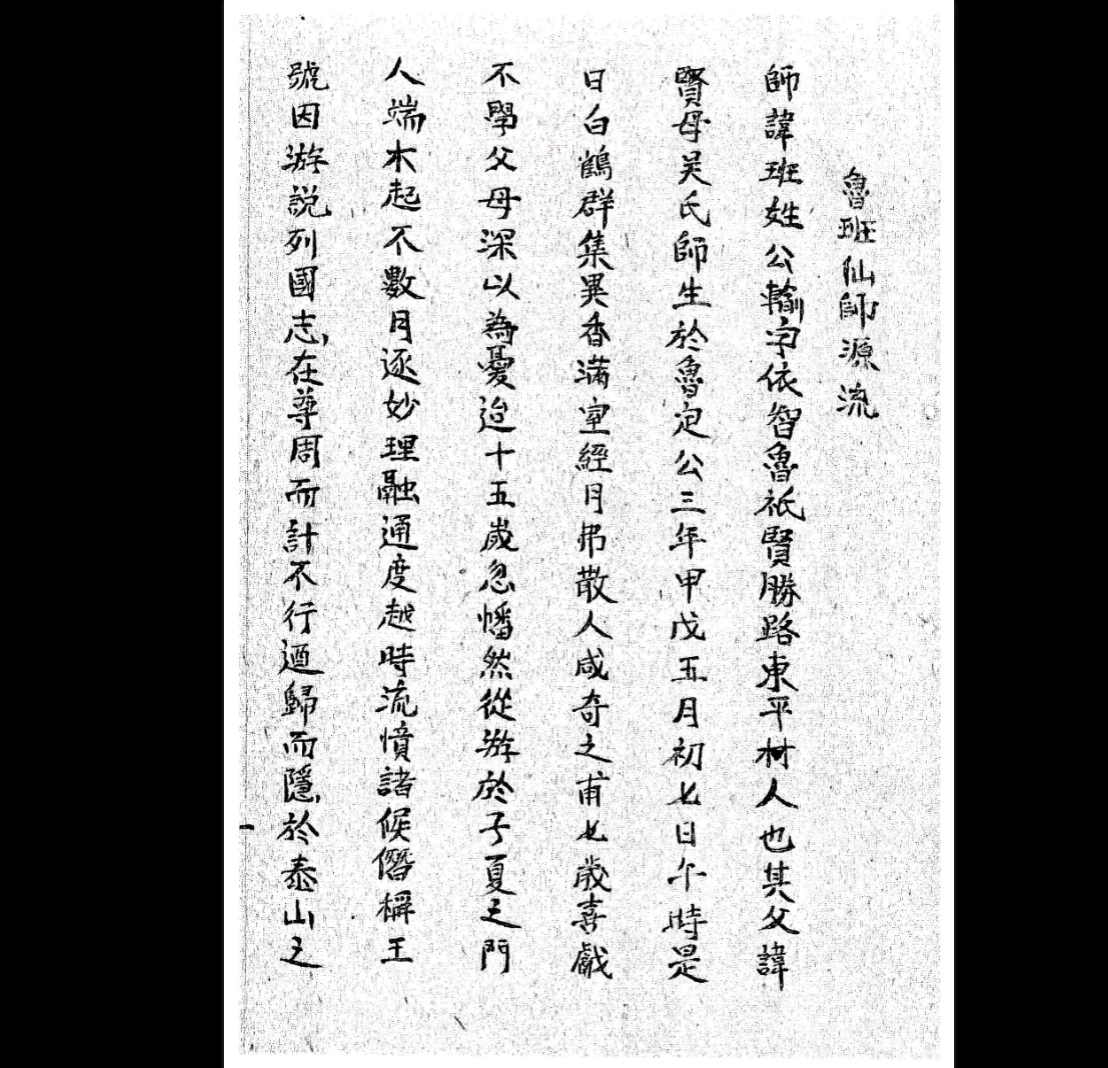 魯班仙師源流
師諱班姓公輸字依智魯祇賢勝路東平村人也其父諱
賢母吴氏師生於魯定公三年甲戊五月初七日午時是
日白鶴群集異香满室經月弗散人咸奇之甫七歲喜戲
不學父母深以為憂迨十五歲忽幡然從游於子夏之門
人端木起不數月逐妙理融通度越時流憤諸候僭稱王
號因游説列國志在尊周而計不行迺歸而隱於泰山之